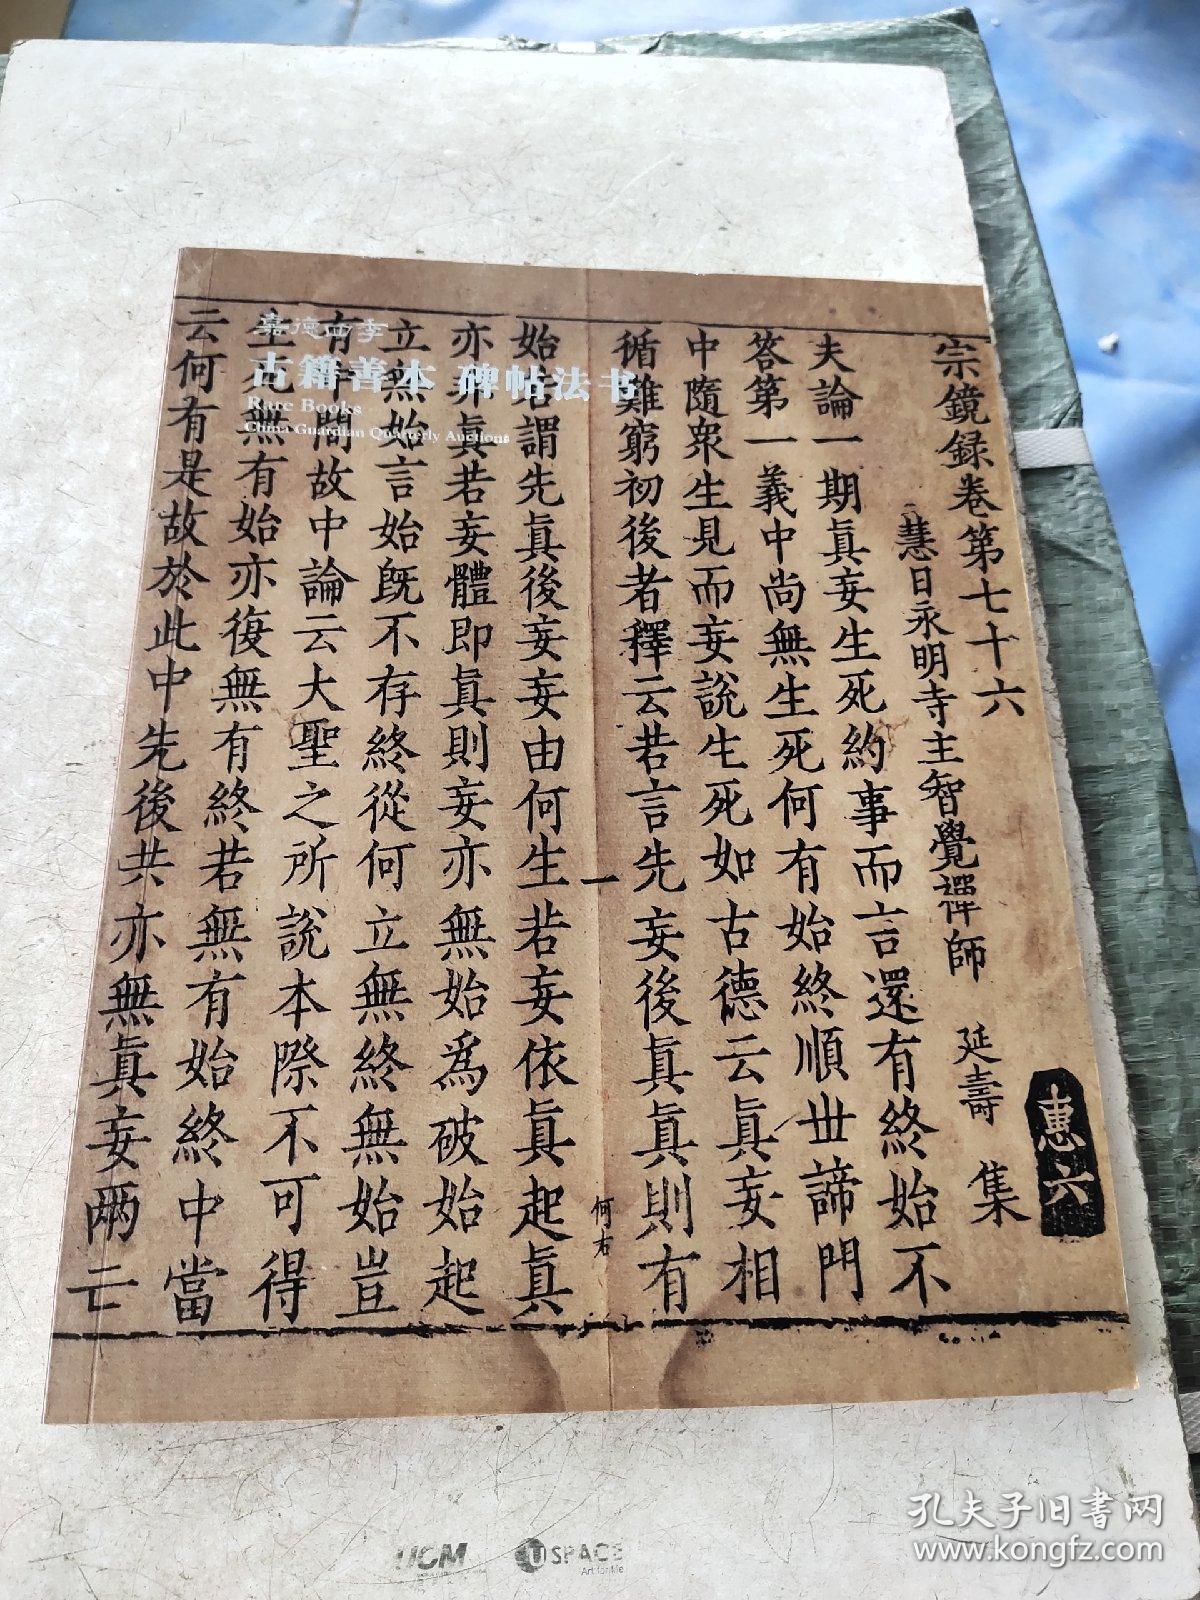 宗鏡録卷第七十六
慧日永明寺主智覺禪師 延壽 集
惠六
夫論一期真妄生死約事而言還有終始不
答第一義中尚無生死何有始終順世諦門
中隨衆生見而妄說生死如古德云真妄相
循難窮初後者釋云若言先妄後真真則有
一
何右
始若謂先真後妄妄由何生若妄依真起真
亦非真若妄體即真則妄亦無始爲破始起
立無始言始既不存終從何立無終無始豈
有中間故中論云大聖之所說本際不可得
生死無有始亦復無有終若無有始終中當
云何有是故於此中先後共亦無真妄兩亡
嘉德四季
古籍善本 碑帖法书
Rare Books
China Guardian Quarterly Auctions
UCM
U SPACE
Art for life
孔夫子旧书网
www.kongfz.com